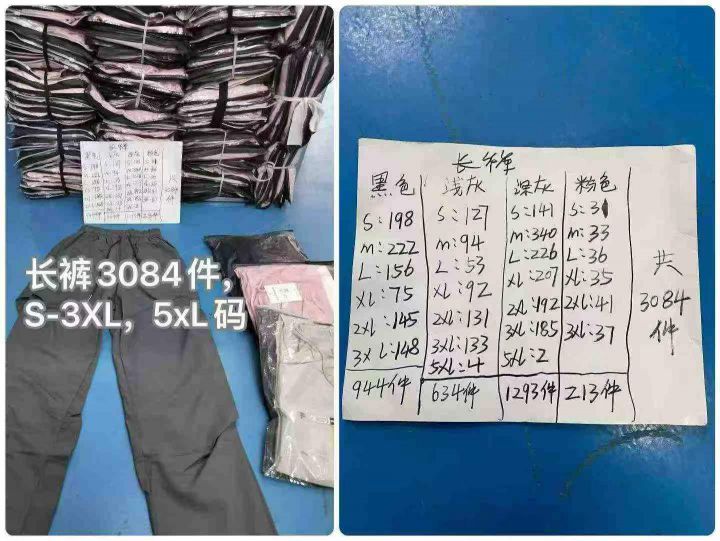 长裤3084件，
S-3XL，5xL码
长裤
黑色 浅灰 深灰 粉色
S:198 S:127 S:141 S:31
M:222 M:94 M:340 M:33
L:156 L:53 L:226 L:36
XL:75 XL:92 XL:207 XL:35
2XL:145 2XL:131 2XL:192 2XL:41
3XL:148 3XL:133 3XL:185 3XL:37
5XL:4 5XL:2
944件 634件 1293件 213件
共
3084
件